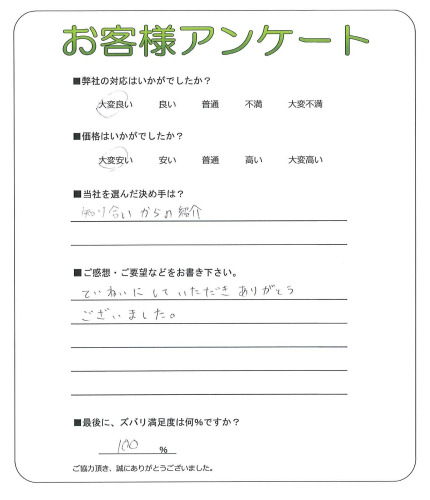 お客様アンケート
■弊社の対応はいかがでしたか？
大変良い 良い 普通 不満 大変不満
■価格はいかがでしたか？
大変安い 安い 普通 高い 大変高い
■当社を選んだ決め手は？
知り合いからの紹介
■ご感想・ご要望などをお書き下さい。
ていねいにしていただきありがとう
ございました。
■最後に、ズバリ満足度は何%ですか？
100 %
ご協力頂き、誠にありがとうございました。